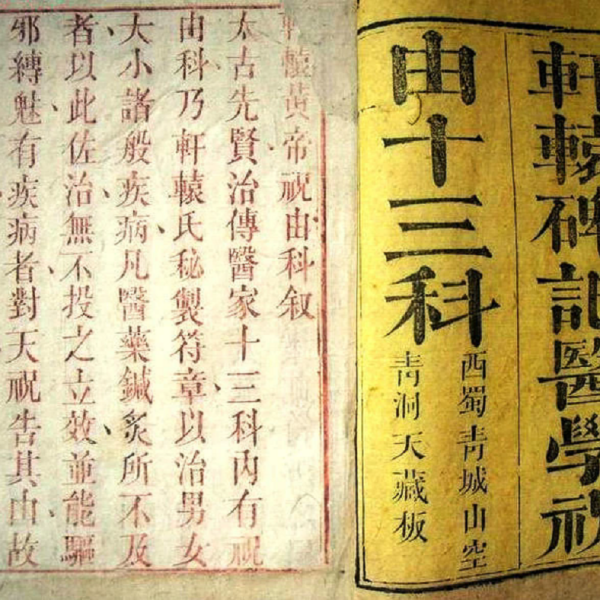 軒轅碑記醫學祝
由十三科
西蜀青城山空
青洞天藏板
軒轅黃帝祝由科叙
太古先賢治傳醫家十三科內有祝
由科乃軒轅氏秘製符章以治男女
大小諸般疾病凡醫藥鍼炙所不及
者以此佐治無不投之立效並能驅
邪縛魅有疾病者對天祝告其由故